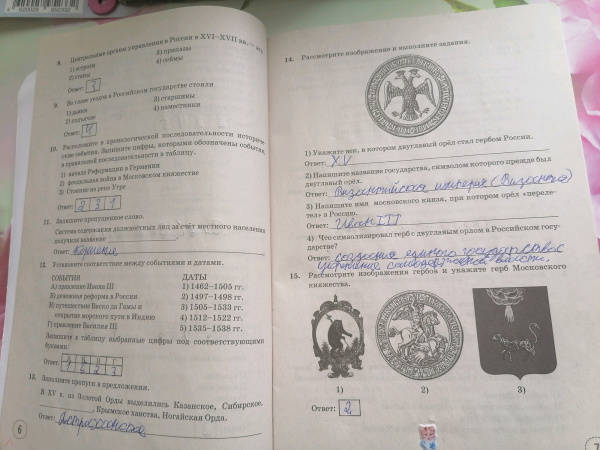 8. Центральные органы управления в России в XVI–XVII вв. — это
1) остроги
2) станы
3) приказы
4) соймы
Ответ: 3
9. Во главе уездов в Российском государстве стояли
1) дьяки
2) подьячие
3) старшины
4) наместники
Ответ: 4
10. Расположите в хронологической последовательности историче-
ские события. Запишите цифры, которыми обозначены события,
в правильной последовательности в таблицу.
1) начало Реформации в Германии
2) феодальная война в Московском княжестве
3) Стояние на реке Угре
Ответ: 2 3 1
11. Запишите пропущенное слово.
Система содержания должностных лиц за счёт местного населения
получила название
Ответ: Кормление
12. Установите соответствие между событиями и датами.
СОБЫТИЯ
А) правление Ивана III
Б) денежная реформа в России
В) путешествие Васко да Гамы и
открытие морского пути в Индию
Г) правление Василия III
ДАТЫ
1) 1462–1505 гг.
2) 1497–1498 гг.
3) 1505–1533 гг.
4) 1512–1522 гг.
5) 1535–1538 гг.
Запишите в таблицу выбранные цифры под соответствующими
буквами:
Ответ:
1 5 2 3
13. Заполните пропуски в предложении.
В XV в. из Золотой Орды выделились Казанское, Сибирское,
, Крымское ханства, Ногайская Орда.
Ответ: Астраханское
6
14. Рассмотрите изображение и выполните задания.
1) Укажите век, в котором двуглавый орёл стал гербом России.
Ответ: XV
2) Напишите название государства, символом которого прежде был
двуглавый орёл.
Ответ: Византийская империя (Византия)
3) Напишите имя московского князя, при котором орёл «переле-
тел» в Россию.
Ответ: Иван III
4) Что символизировал герб с двуглавым орлом в Российском госу-
дарстве?
Ответ: создания единого государства с
укрепление самодержавной власти.
15. Рассмотрите изображения гербов и укажите герб Московского
княжества.
1)
2)
3)
Ответ: 2
7